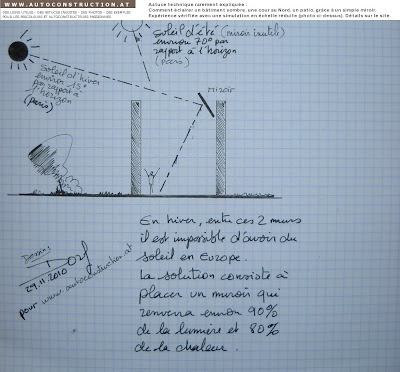 WWW.AUTOCONSTRUCTION.AT
DES LIENS UTILES - DES ASTUCES INEDITES - DES PHOTOS - DES EXEMPLES
POUR LES BRICOLEURS ET AUTOCONSTRUCTEURS PASSIONNES
Astuce technique rarement expliquée :
Comment éclairer un bâtiment sombre, une cour au Nord, un patio, grâce à un simple miroir.
Expérience vérifiée avec une simulation en échelle réduite (photo ci-dessus). Détails sur le site.
soleil d'été (miroir inutile)
environ 70° par
rapport à l'horizon
(paris)
soleil d'hiver
environ 15°
par rapport à
l'horizon
(paris)
miroir
En hiver, entre ces 2 murs
il est impossible d'avoir du
soleil en Europe.
La solution consiste à
placer un miroir qui
renverra environ 90%
de la lumière et 80%
de la chaleur.
Dessin
29.11.2010
pour www.autoconstruction.at